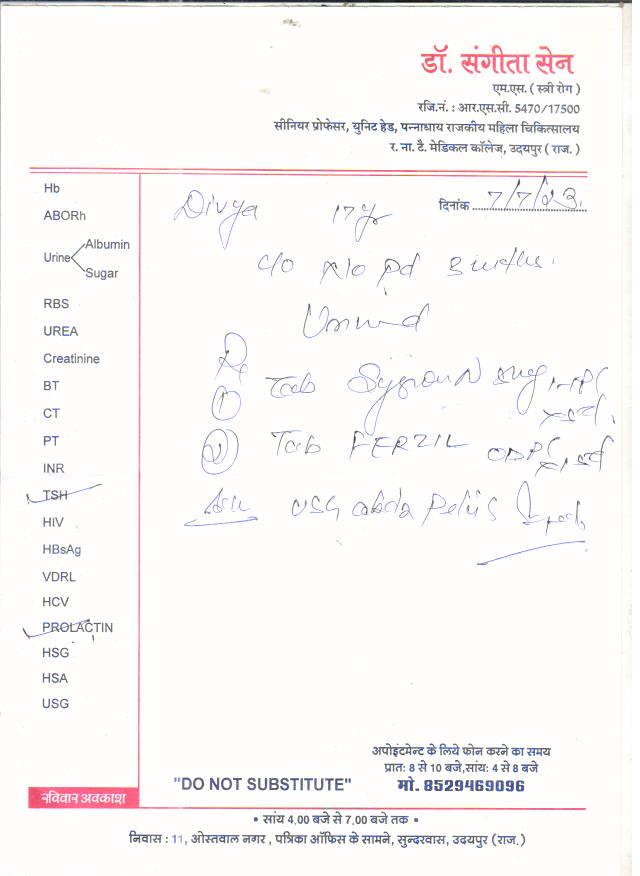 डॉ. संगीता सेन
एम.एस. ( स्त्री रोग )
रजि.नं. : आर.एस.सी. 5470/17500
सीनियर प्रोफेसर, युनिट हेड, पन्नाधाय राजकीय महिला चिकित्सालय
र. ना. टै. मेडिकल कॉलेज, उदयपुर ( राज. )
दिनांक 7/7/23.
Divya 17 yr
Hb
ABORh
Urine Albumin
Sugar
RBS
UREA
Creatinine
BT
CT
PT
INR
TSH
HIV
HBsAg
VDRL
HCV
PROLACTIN
HSG
HSA
USG
c/o Pd 3
Rx
① Tab
② Tab FERZIL
USG Pelvis
अपोइंटमेन्ट के लिये फोन करने का समय
प्रात: 8 से 10 बजे,सांय: 4 से 8 बजे
"DO NOT SUBSTITUTE" मो. 8529469096
रविवार अवकाश
• सांय 4.00 बजे से 7.00 बजे तक •
निवास : 11, ओस्तवाल नगर , पत्रिका ऑफिस के सामने, सुन्दरवास, उदयपुर (राज.)